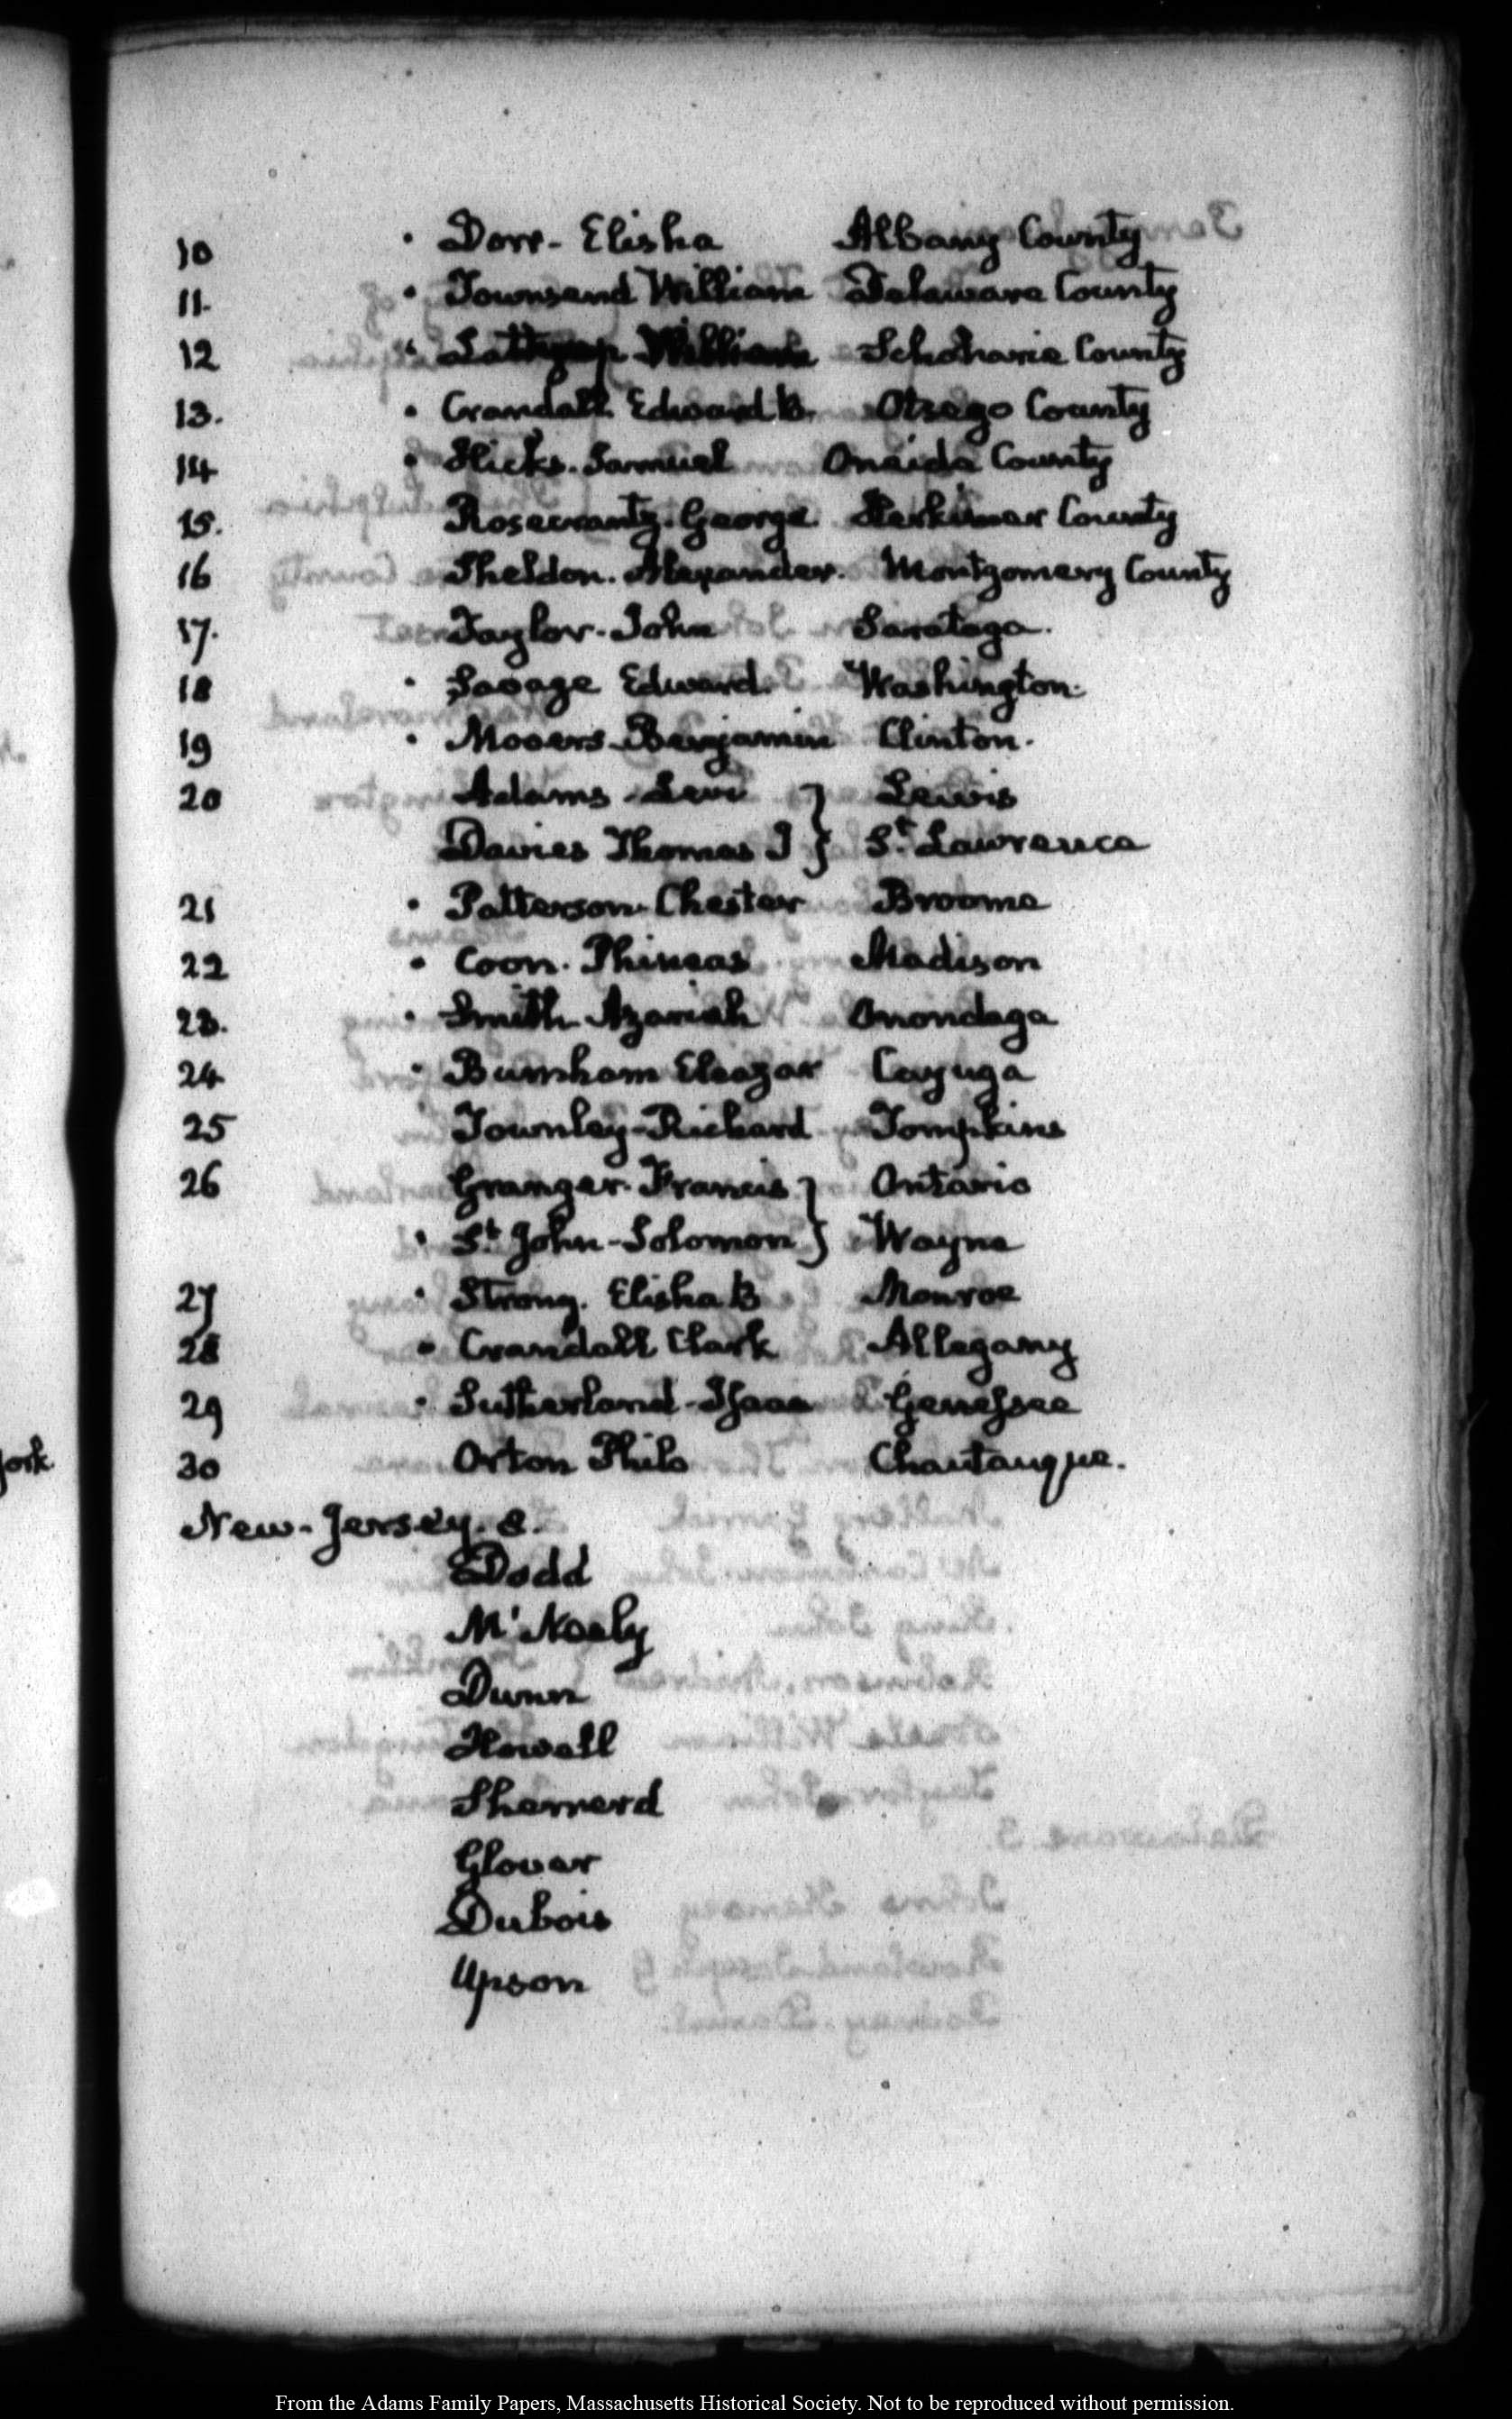 10 · Dorr- Elisha Albany County
11. · Townsend William Delaware County
12 · Lathrop William Schoharie County
13. · Crandall. Edward B. Otsego County
14 · Hicks. Samuel Oneida County
15. Rosecrantz. George Herkimer County
16 Sheldon. Alexander. Montgomery County
17. Taylor. John Saratoga.
18 · Savage Edward. Washington.
19 · Mooers Benjamin Clinton.
20 Adams - Levi } Lewis
Davies Thomas J } St. Lawrence
21 · Patterson. Chester Broome
22 · Coon. Phineas Madison
23. · Smith Azariah Onondaga
24 · Burnham Eleazar Cayuga
25 · Townley-Richard Tompkins
26 Granger. Francis } Ontario
· St. John-Solomon } Wayne
27 · Strong. Elisha B Monroe
28 · Crandall Clark Allegany
29 · Sutherland-Isaac Genessee
30 Orton Philo Chautauque.
New-Jersey. 8.
Dodd
M'Neely
Dunn
Howell
Sherrerd
Glover
Dubois
Upson
ork
From the Adams Family Papers, Massachusetts Historical Society. Not to be reproduced without permission.